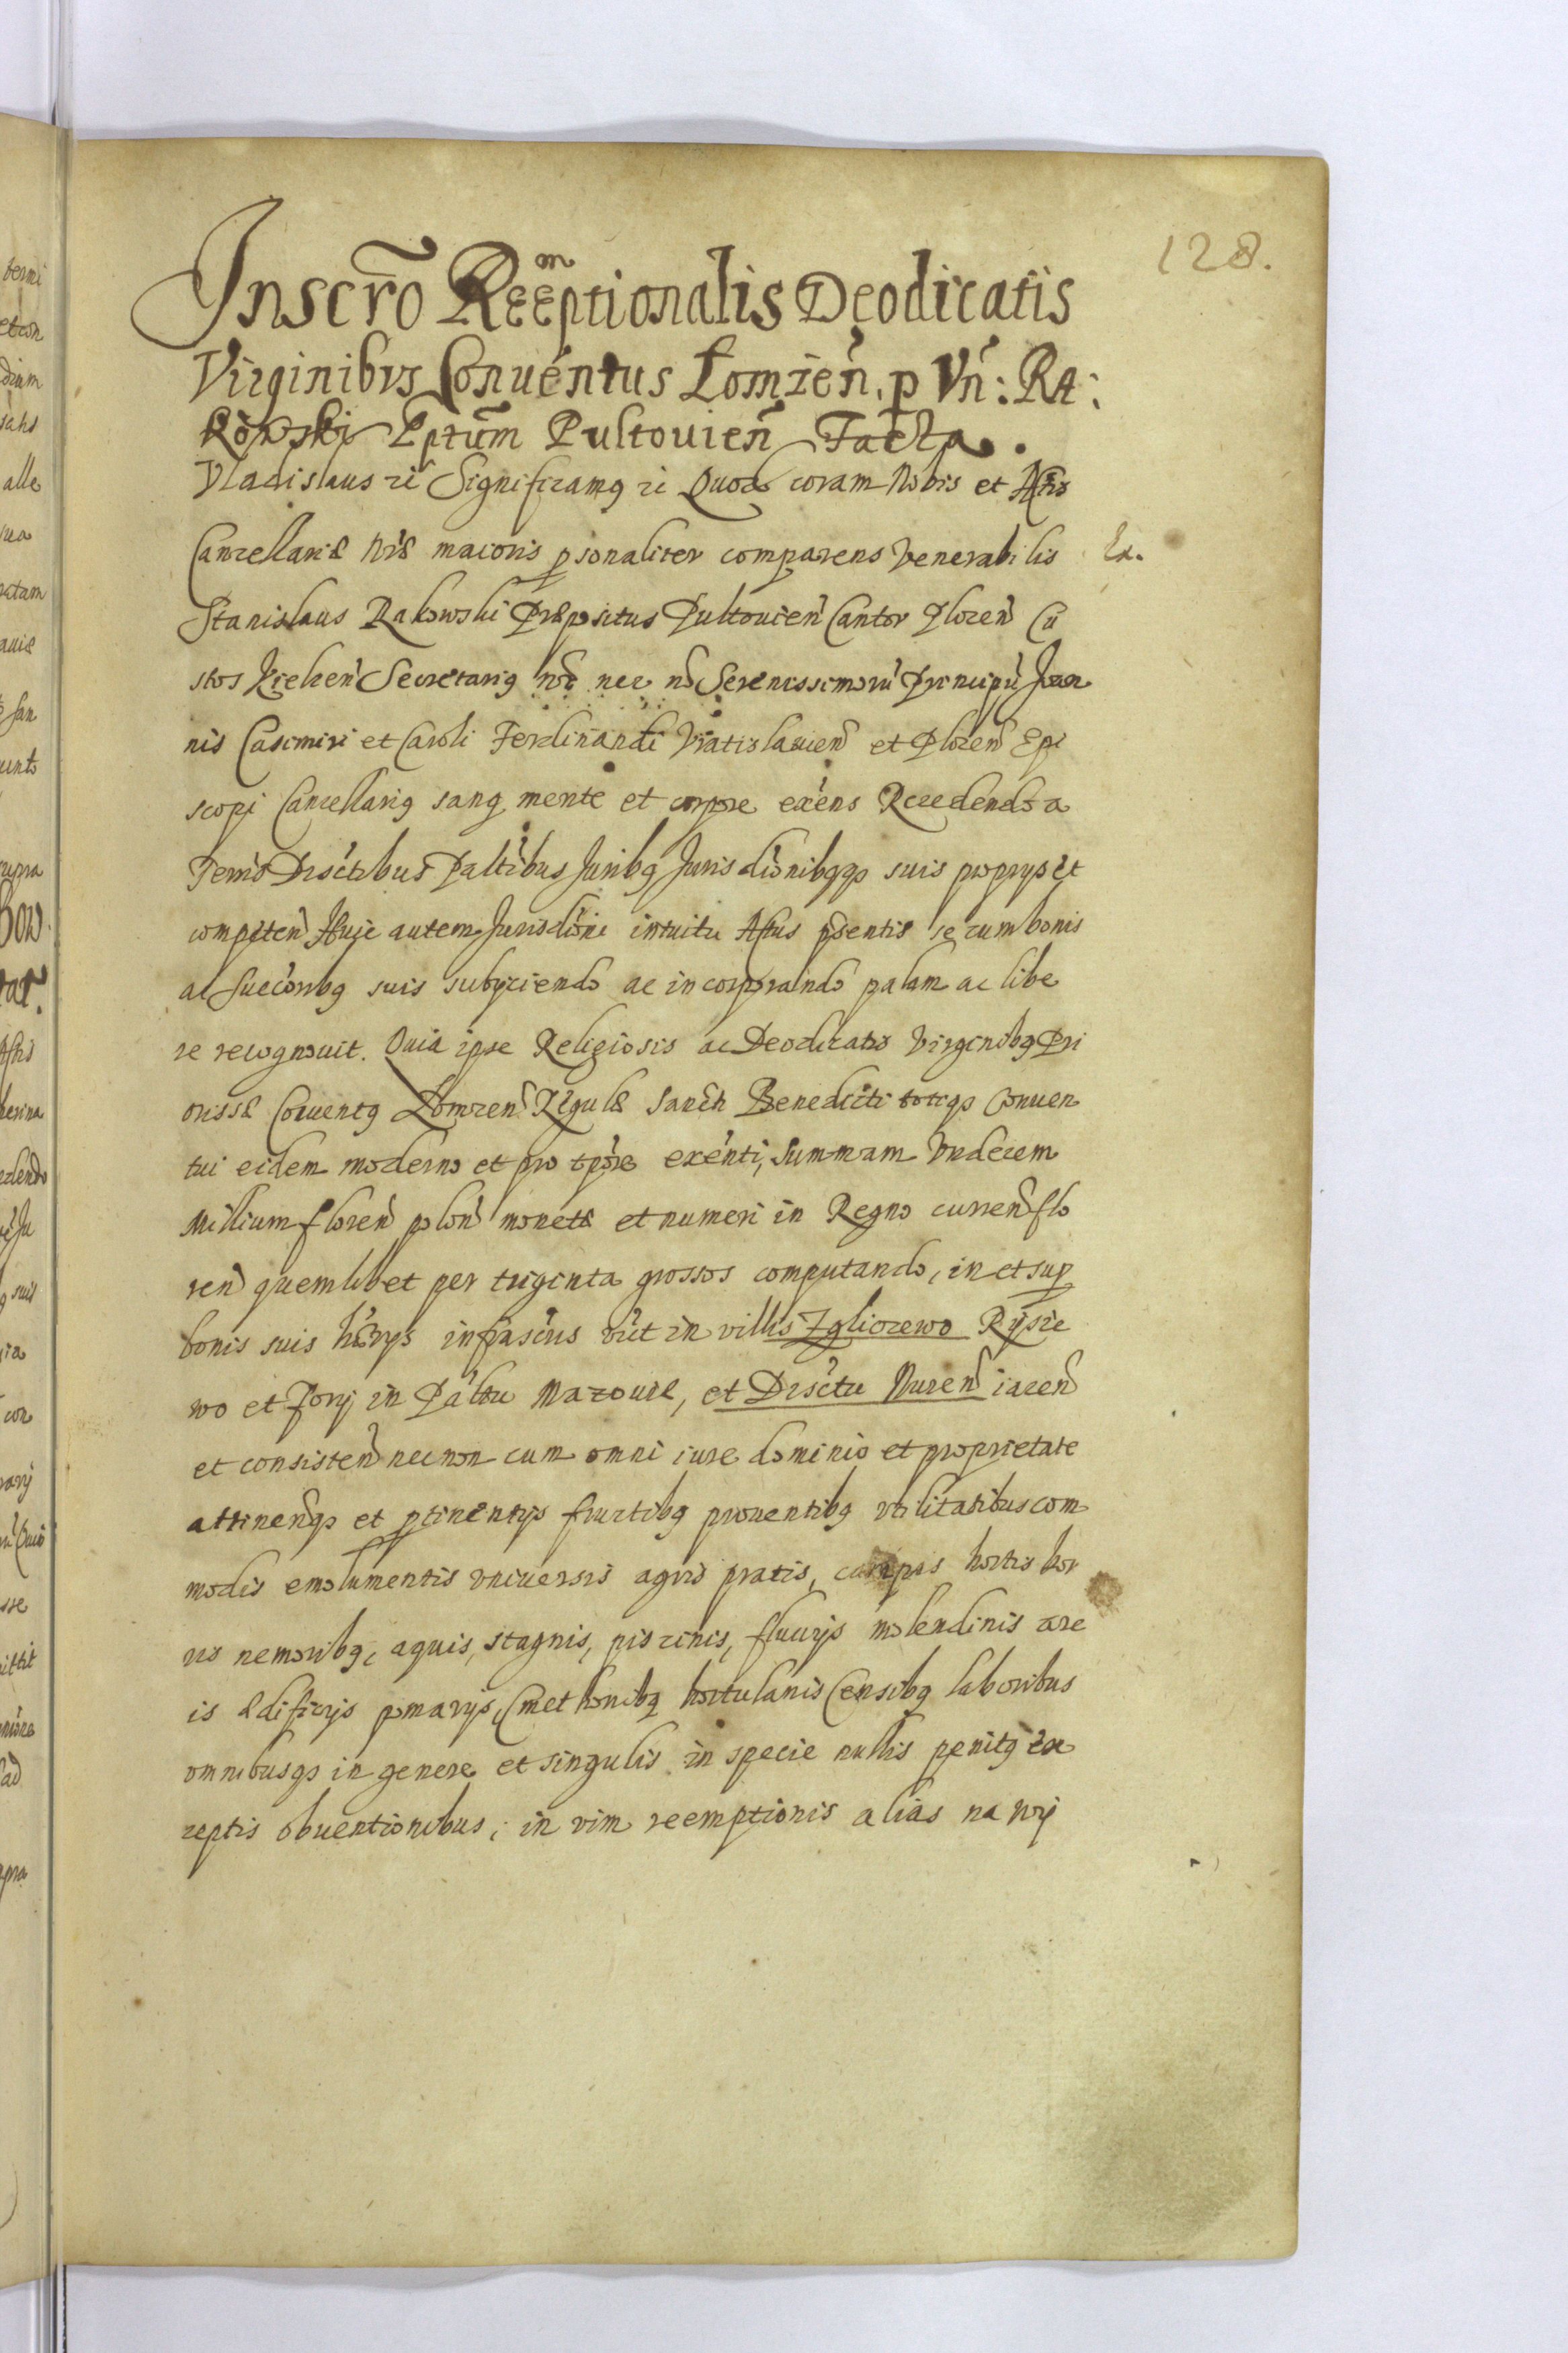 128.
Inscr̃o Reemptionalis Deodicatis
Virginibus Conuentus Lomzen̄. p Vn̄: Ra:
kowski Pptũm Pultouien̄ Facta.
Vladislaus zc Significamq zc Quod coram Nobis et Actis
Cancellariæ Nr̃æ maioris psonaliter comparens Venerabilis Ex.
Stanislaus Rakowski Præpositus Pultouien̄ Cantor Plocen̄ Cu
stos Kielcen̄ Secretariq nr̃ nec nō Serenissimorū Principū Joan
nis Casimiri et Caroli Ferdinandi Vratislauien̄ et Plocen̄ Epi
scopi Cancellariq sanq mente et corpore exēns Recedendo a
Terris Disctibus Paltibus Juribq Jurisdionibqqs suis proprys et
competen̄ Huic autem Jurisdioni intuitu Actus pnsentis se cum bonis
ac Succoribq suis subyciendo ac incorporando palam ac libe
re recognouit. Quia ipse Religiosis ac Deodicatis Virginibq Pri
orissæ Conuentq Lomzen̄ Regulæ Sancti Benedicti totiqs Conuen
tui eidem moderno et pro tpore exēnti, Summam Vndecem
Millium floren̄ polon̄ monetæ et numeri in Regno curren̄ flo
ren̄ quemlibet per triginta grossos computando, in et sup
bonis suis hærys infrascris vīt in villis Zgliczewo Rysie
wo et Jory in Paltu Mazouiæ, et Disctu Nuren̄ iacen̄
et consisten̄ necnon cum omni iure dominio et proprietate
attinenqs et ptinentys fructibq prouentibq vtilitatibus com
modis emolumentis vniuersis agris pratis, campis hortis hor
ris nemoribq, aquis, stagnis, piscinis, fluuys molendinis are
is ædificys pomarys, Cmethonibq hortulanis Censibq laboribus
omnibusqs in genere et singulis in specie nullis penitq ex
ceptis obuentionibus, in vim reemptionis alias na wy